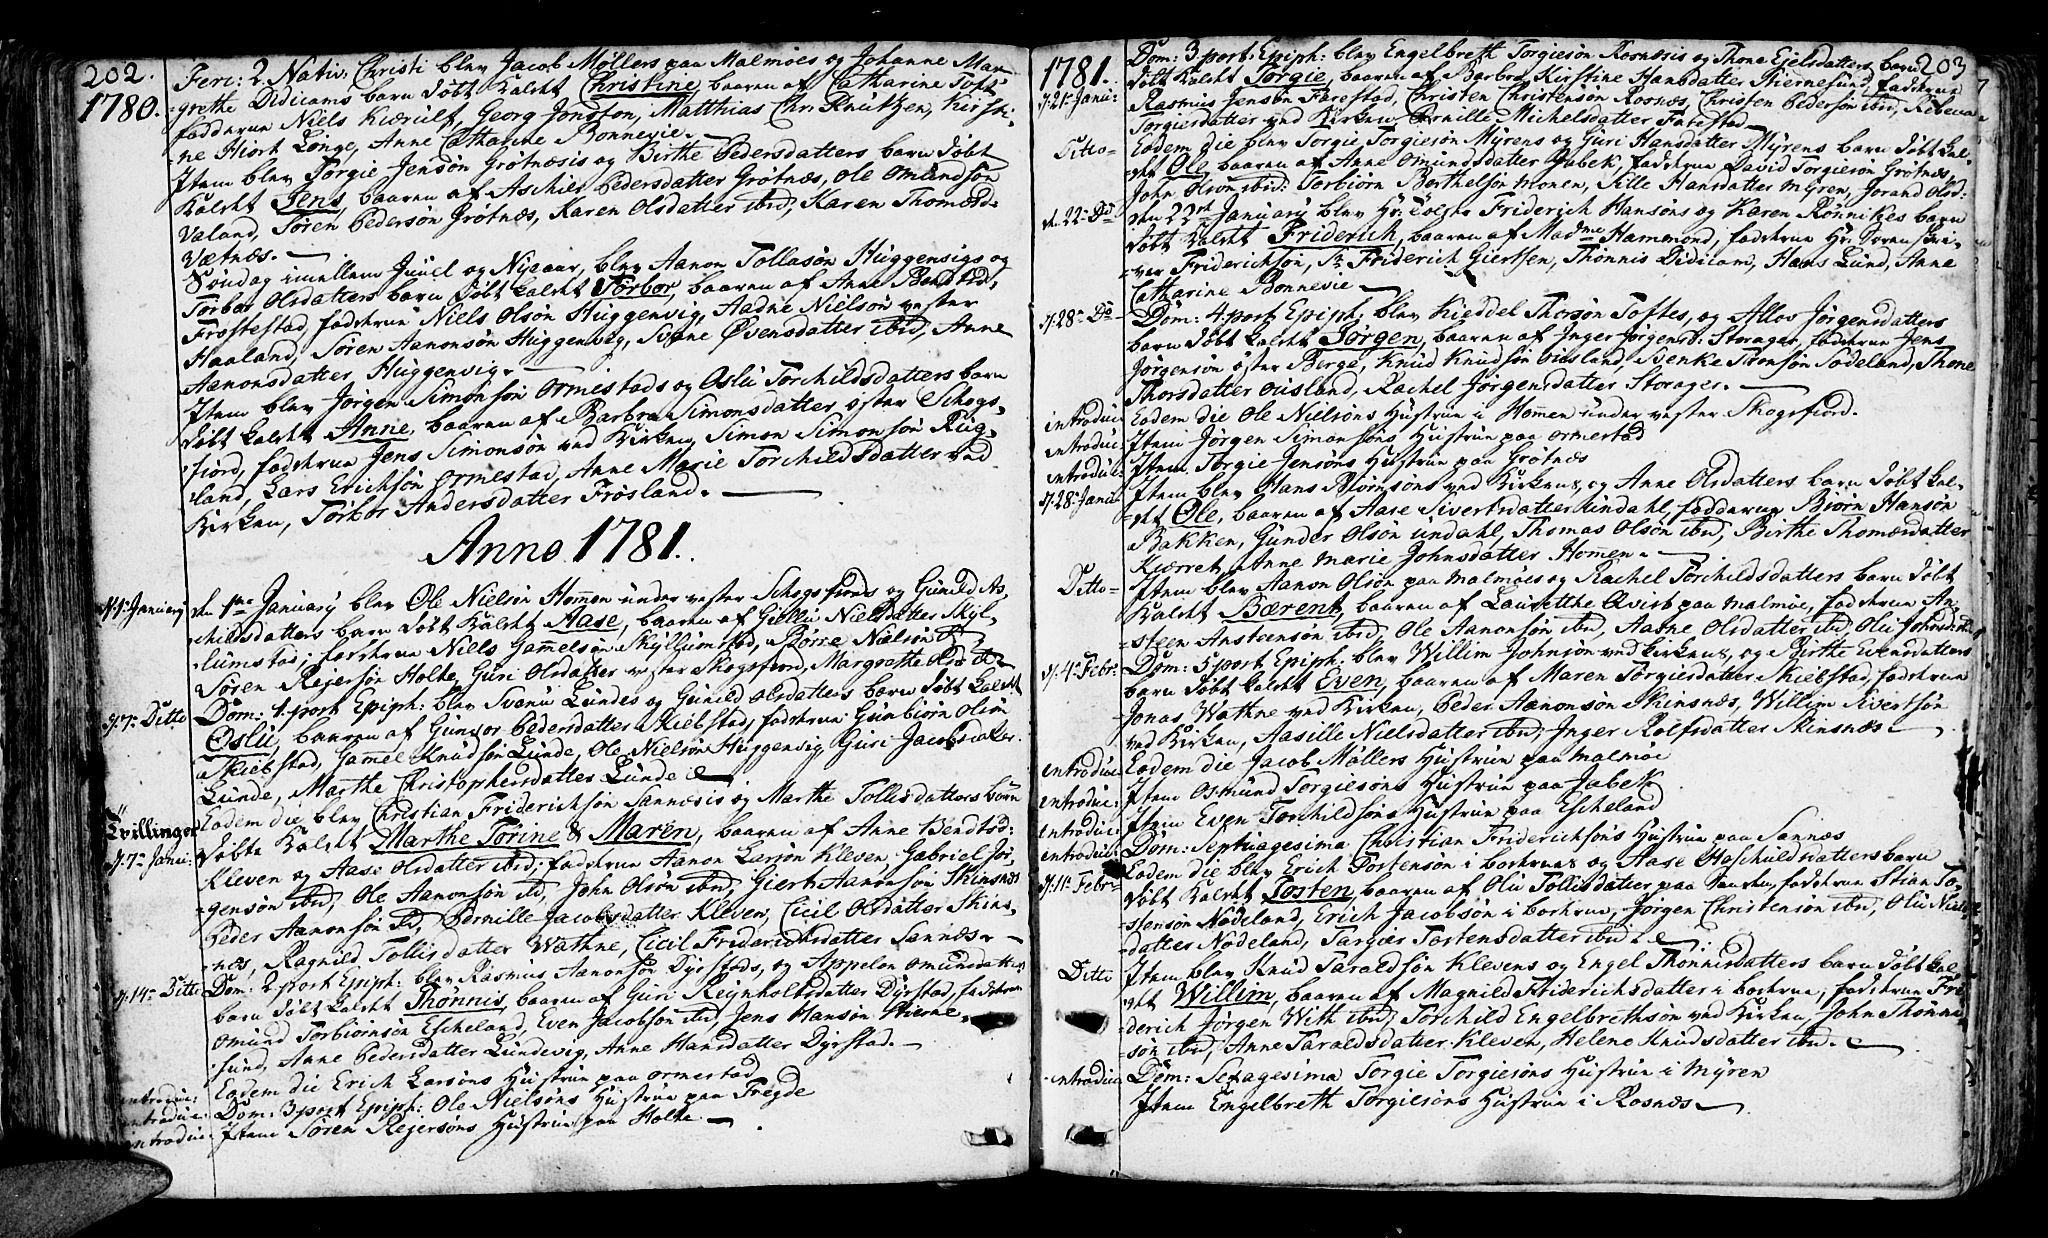 202.
1780.
Feri: 2. Nativ: Christi blev Jacob Møllers paa Malmøes og Johanne Mar-
grethe Didicams barn døbt kaldet Christine, baaren af Catharine Toft
fadderne Niels Kierulf, Georg Jonston, Matthias Chr. Knutzen, Kirsti-
ne Hiort Longe, Anne Catharine Bonnevie.
Item blev Torgie Jensøn Grøtnæsis og Birthe Pedersdatters barn døbt
kaldet Jens, baaren af Aschier Pedersdatter Grøtnæs, Ole Omundsøn
Valand, Søren Pedersøn Grøtnæs, Karen Olsdatter ibid, Karen Thomasd:
Vatnes.
Søndag imellem Juuel og Nyeaar, blev Aanon Tollasøn Huggenvigs og
Torbor Olsdatters barn døbt kaldet Torbor, baaren af Anne Bendtsd,
Frøstestad, fadderne Niels Olsøn Huggenvig, Aadne Nielsøn vester
Haaland, Søren Aanonsøn Huggenvig, Signe Øvensdatter ibid, Anne
Aanonsdatter Huggenvig.
Item blev Jørgen Simonsøn Ormestads og Oslu Torchildsdatters barn
døbt kaldet Anne, baaren af Barbra Simonsdatter øster Schogs-
fiord, fadderne Jens Simonsøn ved Kirken, Simon Simonsøn Rug-
land, Lars Erichsøn Ormestad, Anne Marie Torchildsdatter ved
Kirken, Torbor Andersdatter Frøsland.
Anno 1781.
d. 1. January den 1ste January blev Ole Nielsøn Homen under vester Schogsfiords og Gunild As-
childsdatters barn døbt kaldet Aase, baaren af Gullu Nielsdatter Skyl-
lumstad; fadderne Niels Gammelsøn Skyllumstad, Børre Nielsøn ibid,
Søren Rejersøn Holte, Guri Olsdatter vester Skogsfiord, Margrethe Olsd:
d. 7. Ditto Dom: 1. post Epiph: blev Svenu Lundes og Gunild Olsdatters barn døbt kaldet
Oslu, baaren af Gunvor Pedersdatter Skiebstad, fadderne Gunbiørn Olsøn
Skiebstad, Gamel Knudsøn Lunde, Ole Nielsøn Huggenvig, Guri Jacobsdatter
Lunde, Marthe Christophersdatter Lunde.
Tvillinger Eodem die blev Christian Friderichsøn Sannæsis og Marthe Tollisdatters børn
d. 7. Janu: døbte kaldet Marthe Torine & Maren, baaren af Anne Bendtsd:
Kleven og Aase Olsdatter ibid; fadderne Aanon Larsøn Kleven, Gabriel Jør-
gensøn ibid, Ole Aanonsøn ibid, John Olsøn ibid, Giert Aanonsøn Skinsnæs
Peder Aanonsøn ibid, Pernille Jacobsdatter Kleven, Cicil Olsdatter Skins-
næs, Ragnild Tollisdatter Wathne, Cicil Friderichsdatter Sannæs.
d. 14. Ditto Dom: 2. post Epiph: blev Rasmus Aanonsøn Dyrstads, og Appelon Omundsdatters
barn døbt kaldet Thønnis, baaren af Guri Reinholtsdatter Dyrstad, fadderne
Omund Torbiørnsøn Escheland, Even Jacobsøn ibid, Jens Hansøn Stierne-
sund, Anne Pedersdatter Lundevig, Anne Hansdatter Dyrstad.
introduc: Eodem die Erich Larsøns Hustrue paa Ormestad
introduc: Dom: 3. post Epiph: Ole Nielsøns Hustrue paa Fregde
introduc: Item Søren Rejersøns Hustrue paa Holte
1781.
203
d. 21. Janu: Dom: 3. post. Epiph: blev Engelbreth Torgiesøn Rosnæsis og Thone Ejelsdatters barn
døbt kaldet Torgie, baaren af Barbra Kirstine Hansdatter Stiernesund, fadderne
Rasmus Jensøn Farestad, Christen Christensøn Rosnæs, Christen Pedersøn ibid, Rebecca
Torgiersdatter ved Kirken, Pernille Michelsdatter Farestad.
Ditto Eodem die blev Torgie Torgiesøn Myrens og Guri Hansdatter Myrens barn døbt kal-
det Ole, baaren af Anne Omundsdatter Jabek, fadderne David Torgiesøn Grøtnæs,
John Olsøn ibid: Torbiørn Berthelsøn Monen, Sille Hansdatter Myren, Jorand Olsd:
d. 22. Do den 22de January blev Hr: Friderich Hansøns og Karen Rønnikes barn
døbt kaldet Friderich, baaren af Madme Hammond, fadderne Hr: Soren skri-
ver Friderichsøn, Sr. Friderich Giertsen, Thønnis Didicam, Hans Lund, Anne
Catharine Bonnevie
d. 28. Do Dom: 4. post Epiph: blev Kieddel Thorsøn Toftes, og Allov Jørgensdatters
barn døbt kaldet Jørgen, baaren af Inger Jørgensd: Storager, fadderne Jens
Jørgensøn øster Berge, Knud Knudsøn Ouesland, Svenke Tronsøn Sodeland, Thone
Thorsdatter Ouesland, Rachel Jørgensdatter Storager.
introduc: Eodem die Ole Nielsøns Hustrue i Homen under vester Skogsfiord.
introduc: Item Jørgen Simonsøns Hustrue paa Ormestad
introduc: Item Torgie Jensøns Hustrue paa Grøtnæs
d. 28. Janu: Item blev Hans Biørnsøns ved Kirkens, og Anne Olsdatters barn døbt kal-
det Ole, baaren af Aase Sivertsdatter Uindahl, fadderne Biørn Hansøn
Bakken, Gunder Olsøn Undahl, Thomas Olsøn ibid, Birthe Thomasdatter
Kiærret, Anne Marie Johnsdatter Homen.
Ditto Item blev Aanon Olsøn paa Malmøes og Rachel Torchildsdatters barn døbt
kaldet Bærent, baaren af Laurethe Qvist paa Malmøe, fadderne An-
steen Ansteensøn ibid, Ole Aanonsøn ibid, Aasne Olsdatter ibid, Oli
d. 4. Febr: Dom: 5. post Epiph: blev Willim Johnsøn ved Kirkens, og Birthe Evensdatters
barn døbt kaldet Even, baaren af Maren Torgiersdatter Skiebstad, fadderne
Jonas Wathne ved Kirken, Peder Aanonsøn Skinsnæs, Willim Sivertsøn
ved Kirken, Aasille Nielsdatter ibid, Inger Rolfsdatter Skinsnæs.
introduc: Eodem die Jacob Møllers Hustrue paa Malmøe
introduc: Item Osmund Torgiesøns Hustrue paa Jabek
introduc: Item Even Torchildsøns Hustrue paa Escheland
introduc: Dom: Septuagesima Christian Friderichsøns Hustrue paa Sannæs
d. 11. Febr: Eodem die blev Erich Tostensøn i Borkenes og Aase Haschuldsdatters barn
døbt kaldet Tosten, baaren af Oli Tollisdatter paa Sanden, fadderne Stian To-
stensøn Nødeland, Erich Jacobsøn i Borkene, Jørgen Christensøn ibid, Oli Niels-
datter Nødeland, Targier Tostensdatter ibid.
Ditto Item blev Knud Taraldsøn Klevens og Engel Thønnisdatters barn døbt kal-
det Willim, baaren af Magnild Friderichsdatter i Borkene, fadderne Fri-
derich Jørgen With ibid, Torchild Engelbrethsøn ved Kirken, John Thønni-
søn ibid, Anne Taraldsdatter Kleven, Helene Knudsdatter ibid.
introduc: Dom: Sexagesima Torgie Torgiesøns Hustrue i Myren
Item Engelbreth Torgiesøns Hustrue i Rosnæs